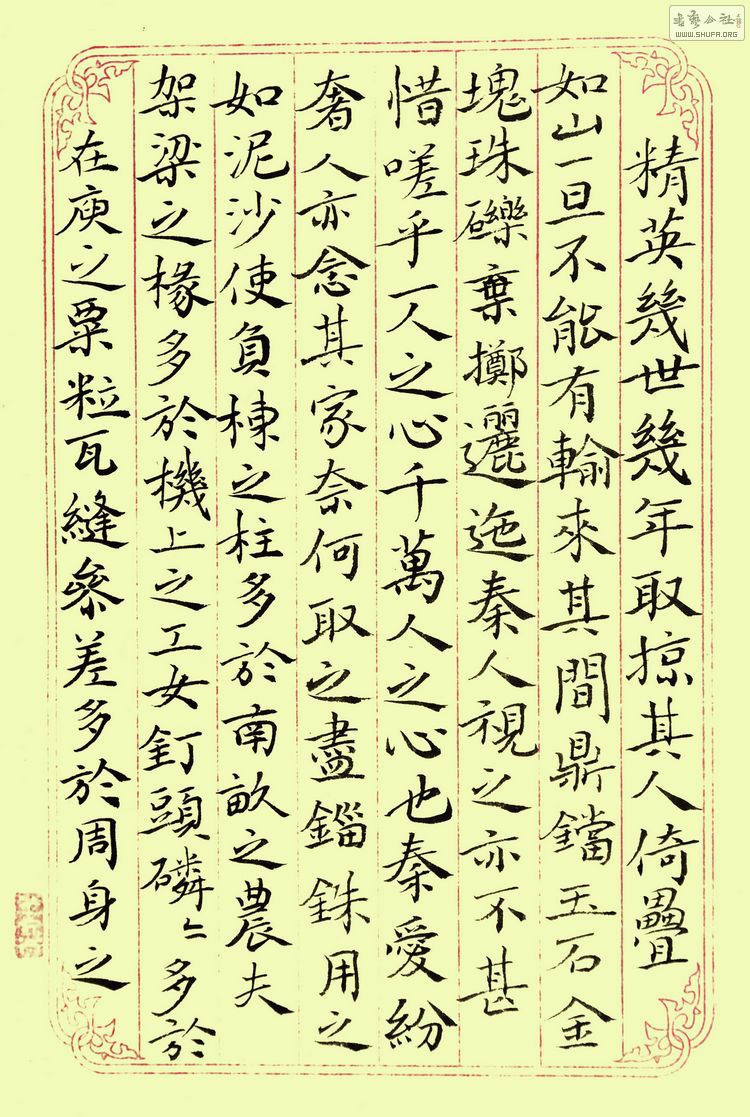 精英幾世幾年取掠其人倚疊
如山一旦不能有輸來其間鼎鐺玉石金
塊珠礫棄擲邐迤秦人視之亦不甚
惜嗟乎一人之心千萬人之心也秦愛紛
奢人亦念其家奈何取之盡錙銖用之
如泥沙使負棟之柱多於南畝之農夫
架梁之椽多於機上之工女釘頭磷〻多於
在庾之粟粒瓦縫參差多於周身之
WWW.SHUFA.ORG